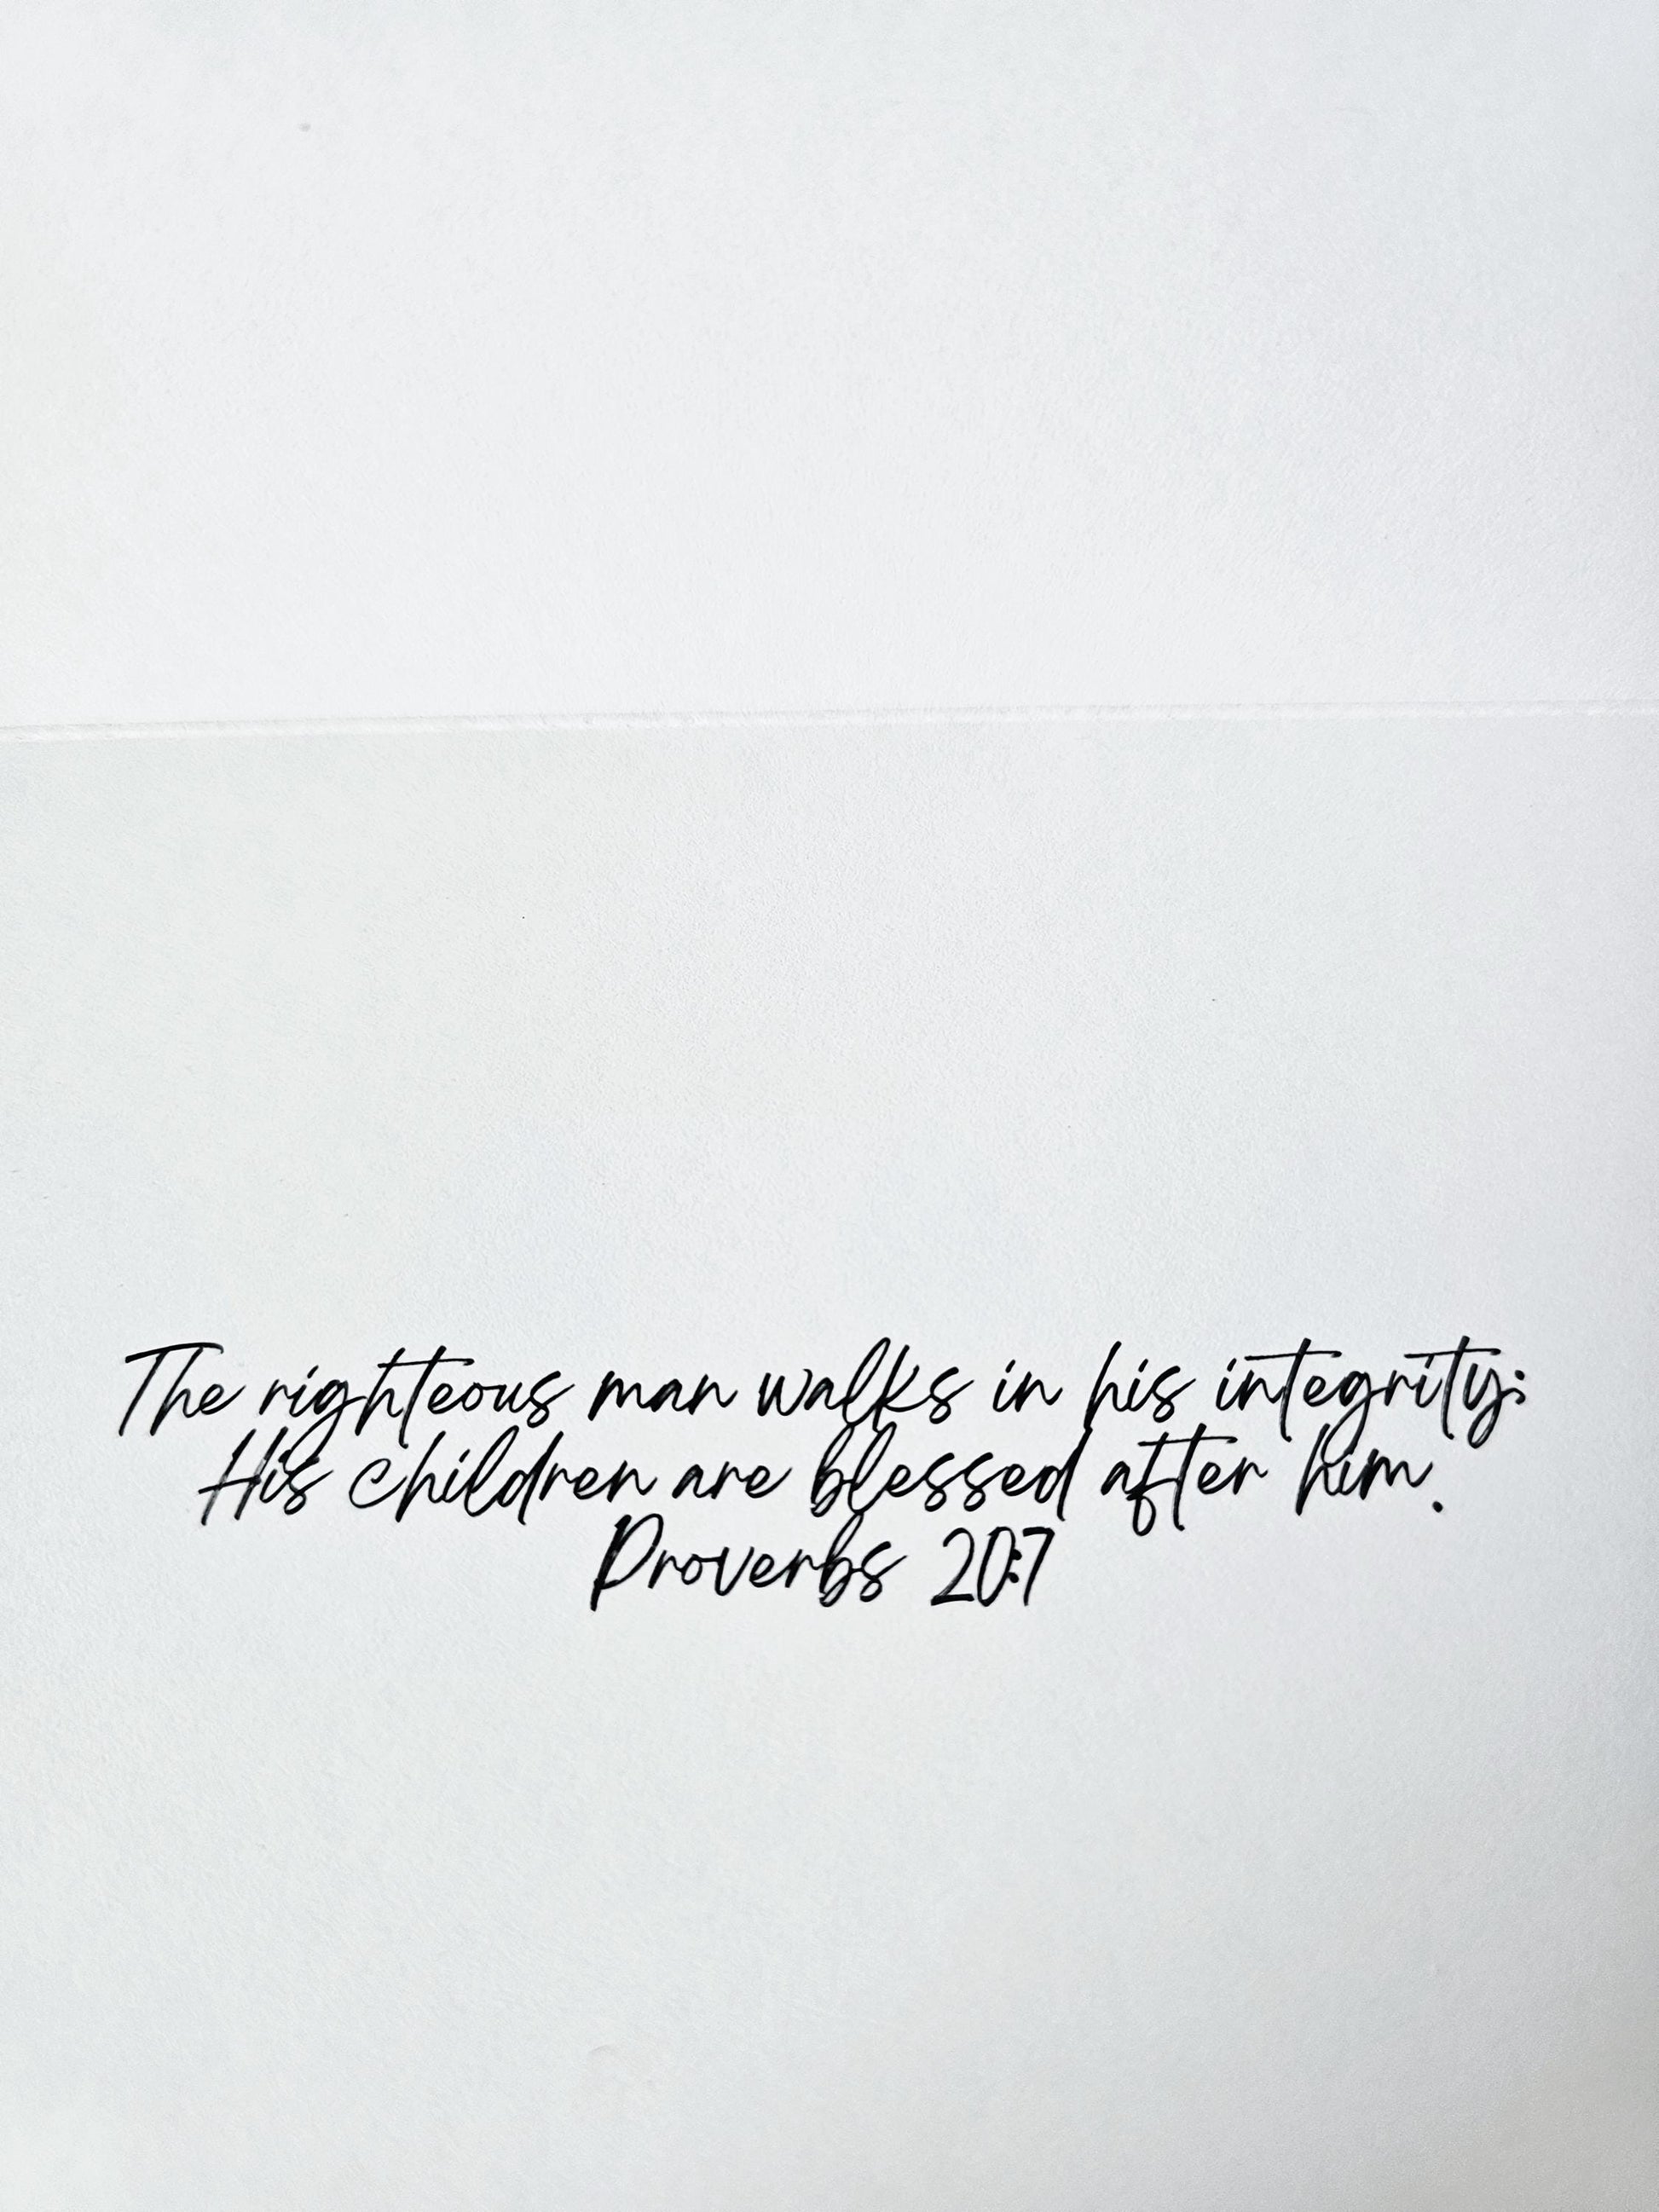 The righteous man walks in his integrity;
His children are blessed after him.
Proverbs 20:7